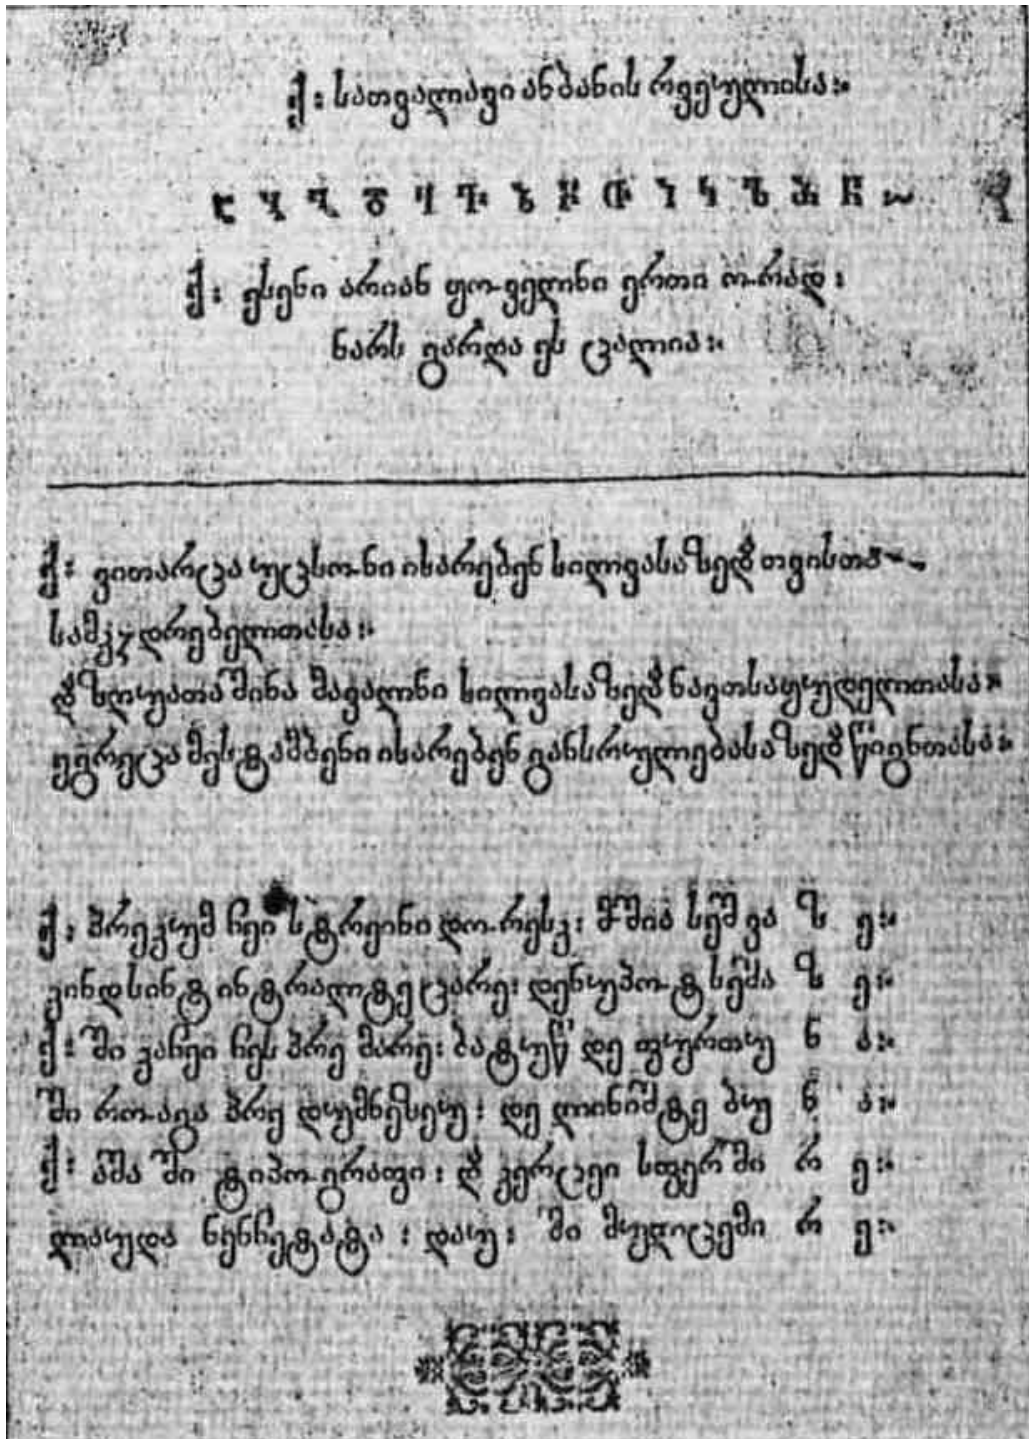 ქ: სათვალავი ანბანის რვეულისა:
Ⴀ Ⴁ Ⴂ Ⴃ Ⴄ Ⴅ Ⴆ Ⴡ Ⴇ Ⴈ Ⴉ Ⴊ Ⴋ Ⴌ
ქ: ესენი არიან ყოველნი ერთი ორად:
ნარს გარდა ეს ცალია:
ქ: ვითარცა უცხონი იხარებენ ხილვასა ზედა თვისთა
სამკჳდრებელთასა:
და ზღუათა შინა მავალნი ხილვასა ზედა ნავთსაყუდელთასა:
ეგრეცა მესტამბენი იხარებენ განსრულებასა ზედა წიგნთასა:
ქ: პრეკუმ ჩეი სტრეინი დორესკ: მოშია სეშ ვა ზ ე:
კინდ სინტ ინტრალტე ცარე: დე ნუ პოტ სეშა ზ ე:
ქ: ში კაჩეი ჩეს პრე მარე: ბატუწ დე ფურთუ ნ ა:
ში როაგა პრე დუმნეზეუ: დე ლინიშტე ბუ ნ ა:
ქ: აშა ში ტიპოგრაფი: და კერცეი სფერში რ ე:
ლაუდა ნენჩეტატა: დაუ: ში მულცემი რ ე: